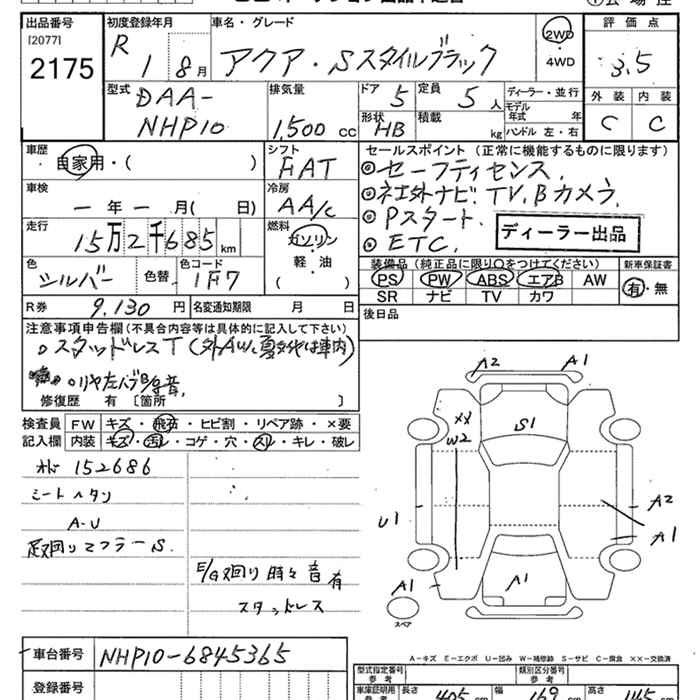 出品番号 初度登録年月 車名・グレード 評価点
[2077]
2175 R 1 8月 アクア・Sスタイルブラック 2WD・4WD 3.5
型式 DAA-NHP10 排気量 1,500 cc ドア 5 定員 5人 ディーラー・並行
形状 HB 積載 kg モデル年式 年 ハンドル 左・右
外装 内装
C C
車歴 自家用・( ) シフト FAT
セールスポイント(正常に機能するものに限ります)
◎セーフティセンス.
◎社外ナビ. TV. Bカメラ.
◎Pスタート.
◎ETC.
ディーラー出品
車検 ー年ー月( 日) 冷房 AA/c
走行 15万2千685km 燃料 ガソリン・軽・油 ( )
色 シルバー 色替 色コード 1F7
装備品(純正品に限り○をつけてください) 新車保証書
PS PW ABS エアB AW 有・無
SR ナビ TV カワ
R券 9,130円 名変通知期限 月 日
後日品
注意事項申告欄(不具合内容等は具体的に記入して下さい)
スタッドレスT(外AW、夏タイヤは車内)
リヤ左ハブB/g音.
修復歴 有 〔箇所 〕
検査員 FW キズ・飛石・ヒビ割・リペア跡・×要
記入欄 内装 キズ・汚レ・コゲ・穴・スレ・キレ・破レ
152686
シートヘタリ
A-U
足回りマフラーS.
E/G又回り時々音有
スタッドレス
A2 A1
XX
W2
S1
U1
A2
A1
A1
A1
スペア
A-キズ E-エクボ U-凹み W-補修跡 S-サビ C-腐食 XX-交換済
車台番号 NHP10-6845365
登録番号
型式指定番号 参考 類別区分番号 参考
車庫証明用 参考 長さ 405 cm 幅 169 cm 高さ 145 cm